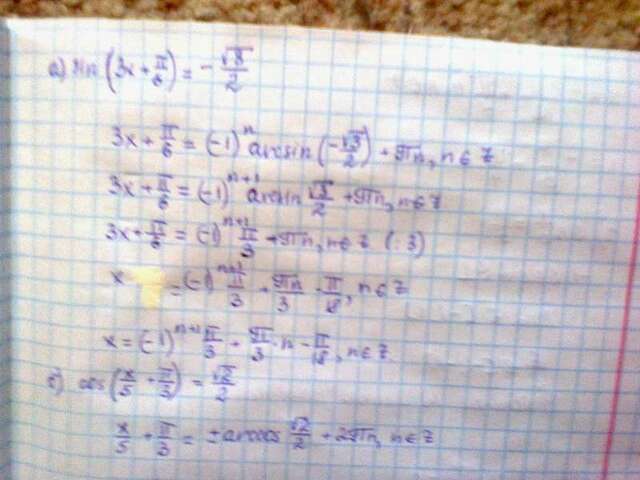 а) sin(3x + π/6) = -√3/2
3x + π/6 = (-1)^n arcsin(-√3/2) + πn, n∈Z
3x + π/6 = (-1)^(n+1) arcsin √3/2 + πn, n∈Z
3x + π/6 = (-1)^(n+1) π/3 + πn, n∈Z (:3)
x = (-1)^(n+1) π/3 + πn/3 - π/18, n∈Z
x = (-1)^(n+1) π/3 + π/3·n - π/18, n∈Z
б) cos(x/5 + π/3) = √2/2
x/5 + π/3 = ±arccos √2/2 + 2πn, n∈Z